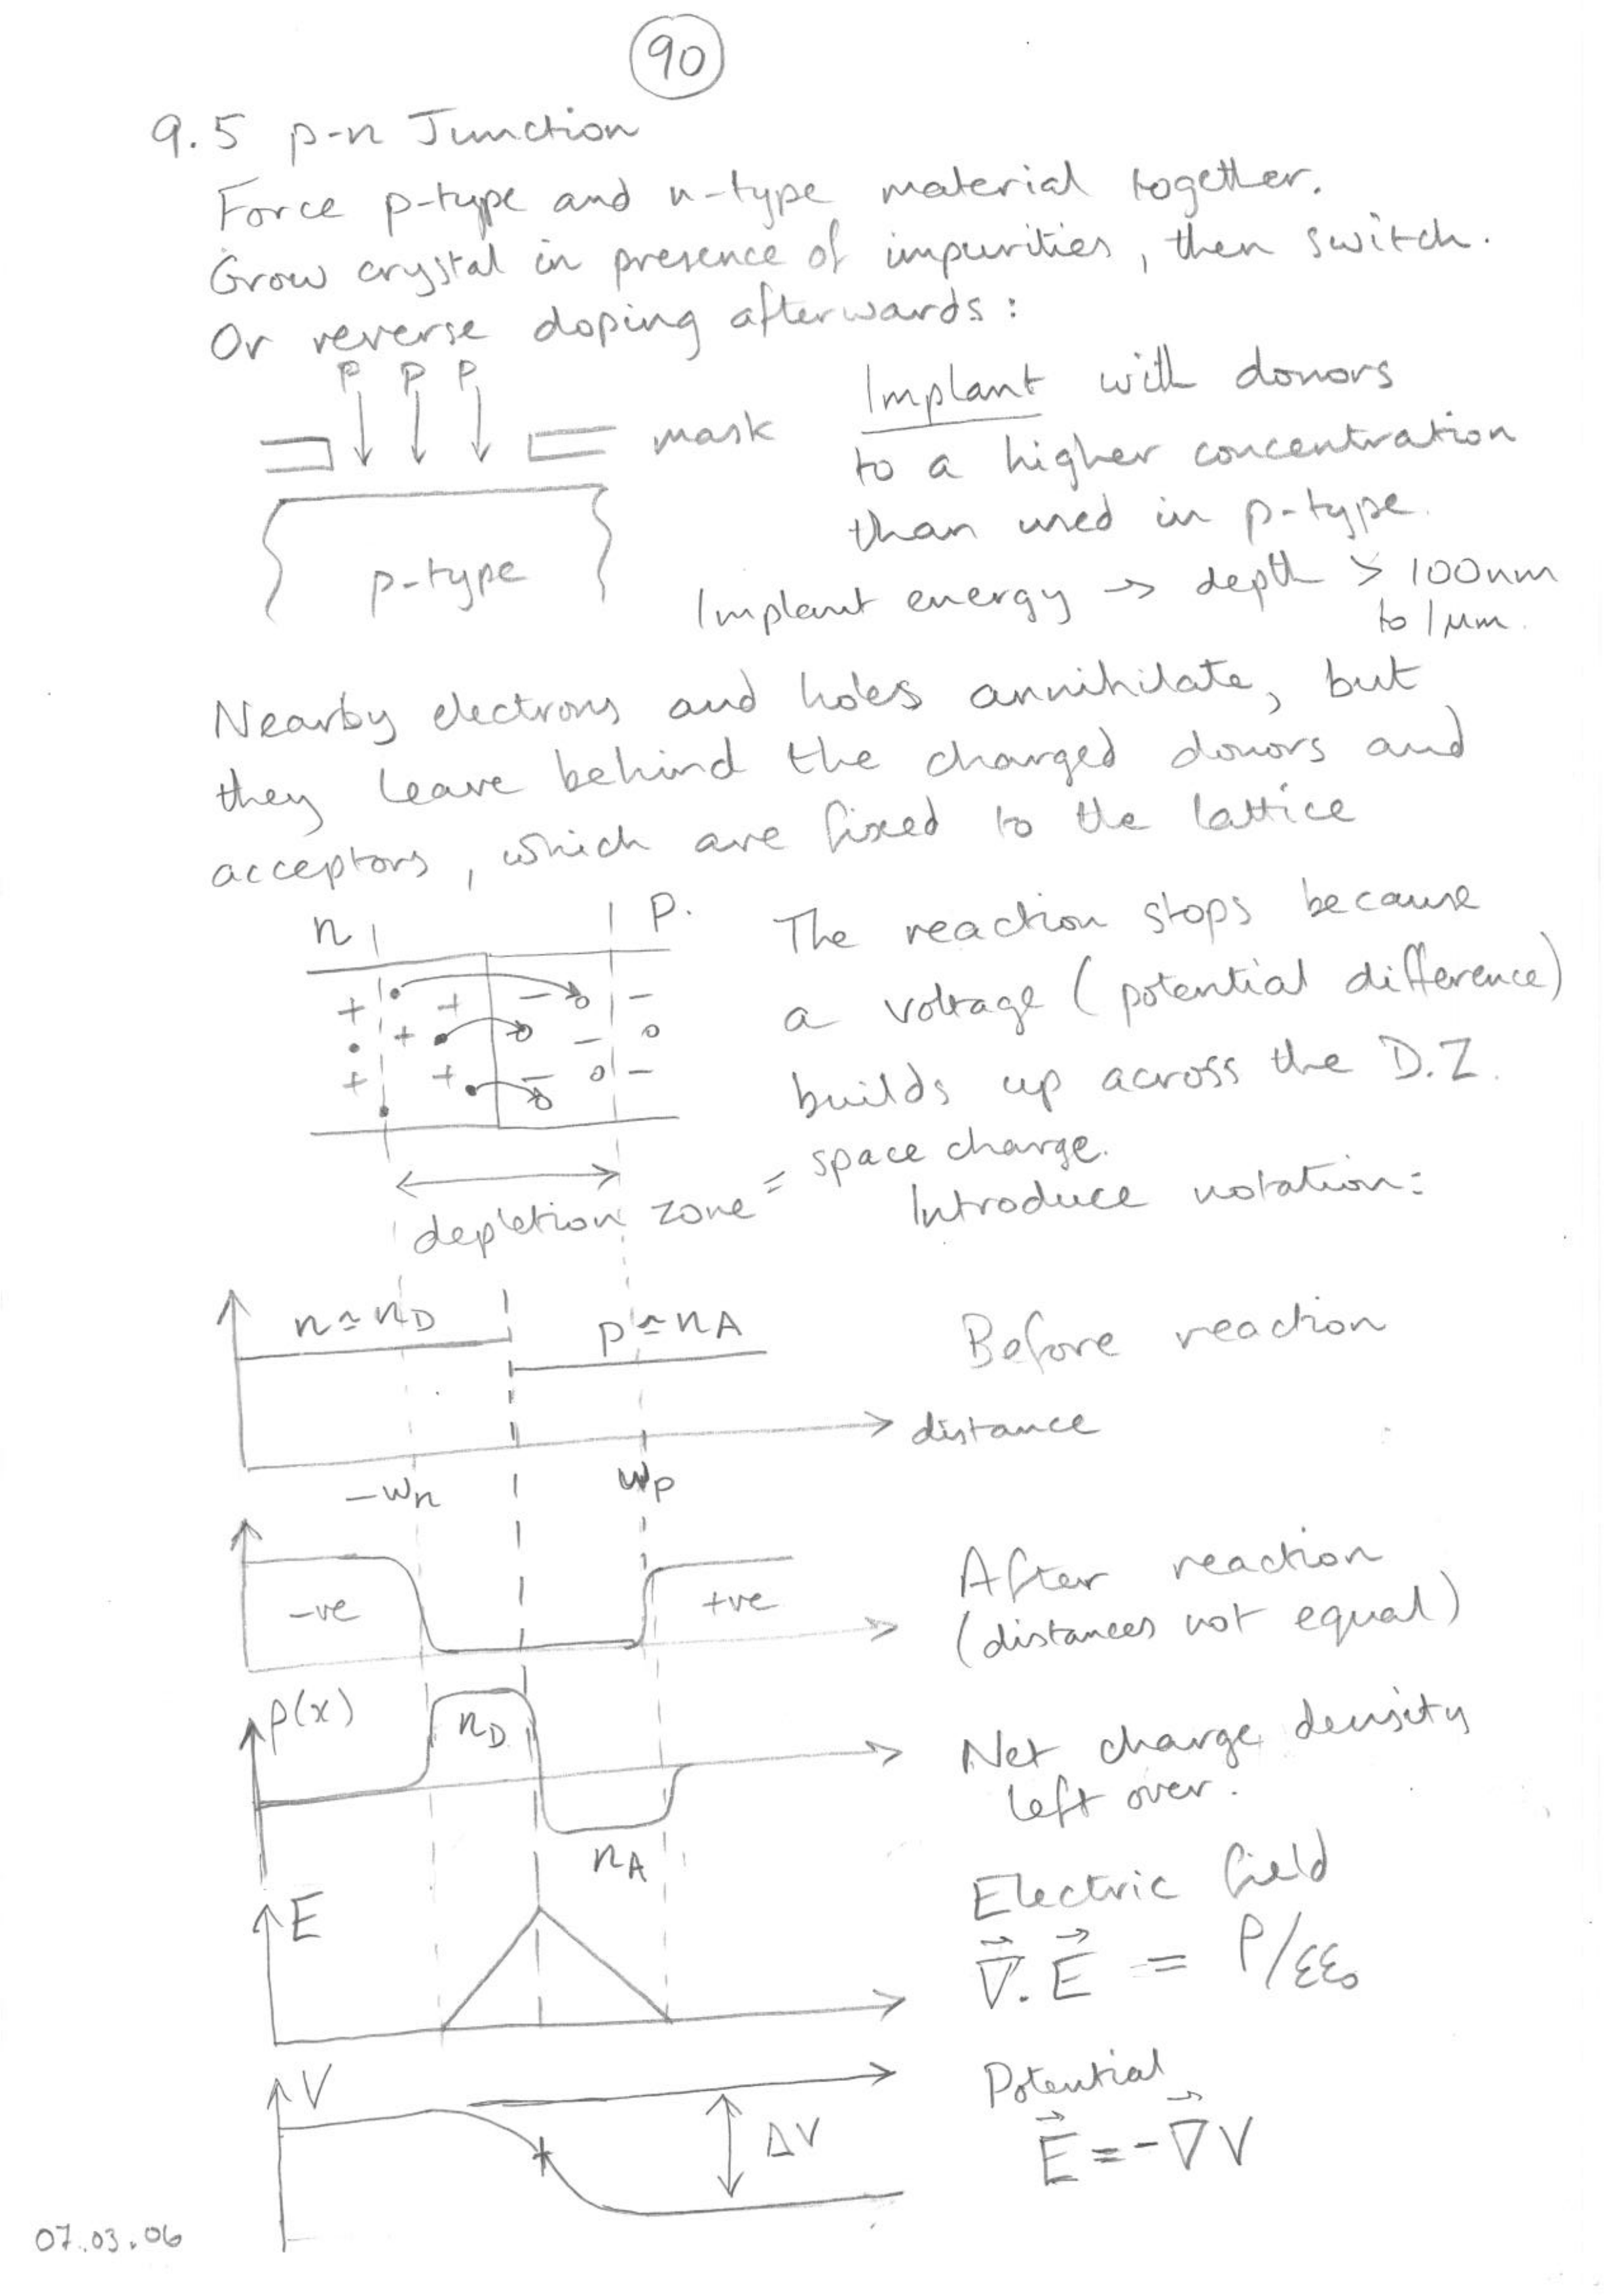 90
9.5 p-n Junction
Force p-type and n-type material together.
Grow crystal in presence of impurities, then switch.
Or reverse doping afterwards:
P P P
mask
p-type
Implant with donors
to a higher concentration
than used in p-type.
Implant energy → depth > 100nm
to 1 μm.
Nearby electrons and holes annihilate, but
they leave behind the charged donors and
acceptors, which are fixed to the lattice
n p.
+ + - o -
+ o - o
+ + - o -
The reaction stops because
a voltage (potential difference)
builds up across the D.Z.
depletion zone = space charge.
Introduce notation:
n ≃ nD p ≃ nA
Before reaction
distance
-wn wp
-ve +ve
After reaction
(distances not equal)
ρ(x)
nD
nA
Net charge density
left over.
E
Electric field
∇⃗.E⃗ = ρ/εε₀
V
ΔV
Potential
E⃗ = -∇⃗V
07.03.06